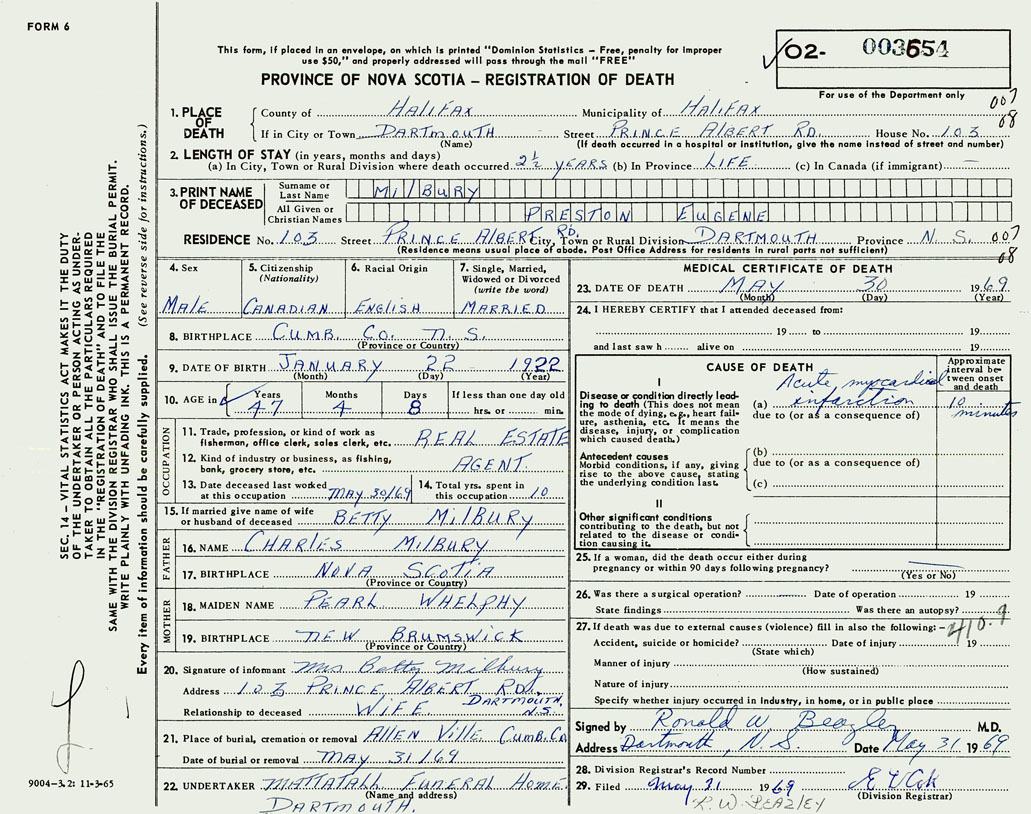 FORM 6
This form, if placed in an envelope, on which is printed "Dominion Statistics – Free, penalty for improper
use $50," and properly addressed will pass through the mail "FREE"
PROVINCE OF NOVA SCOTIA – REGISTRATION OF DEATH
02- 003654
For use of the Department only
007
08
1. PLACE OF DEATH
County of HALIFAX Municipality of HALIFAX
If in City or Town DARTMOUTH Street PRINCE ALBERT RD. House No. 103
(Name) (If death occurred in a hospital or institution, give the name instead of street and number)
2. LENGTH OF STAY (in years, months and days)
(a) In City, Town or Rural Division where death occurred 2½ YEARS (b) In Province LIFE (c) In Canada (if immigrant) —
3. PRINT NAME OF DECEASED
Surname or Last Name MILBURY
All Given or Christian Names PRESTON EUGENE
RESIDENCE No. 103 Street PRINCE ALBERT RD. City, Town or Rural Division DARTMOUTH Province N. S. 007
(Residence means usual place of abode. Post Office Address for residents in rural parts not sufficient) 08
4. Sex MALE
5. Citizenship (Nationality) CANADIAN
6. Racial Origin ENGLISH
7. Single, Married, Widowed or Divorced (write the word) MARRIED
8. BIRTHPLACE CUMB. CO. N. S.
(Province or Country)
9. DATE OF BIRTH JANUARY 22 1922
(Month) (Day) (Year)
10. AGE in Years 47 Months 4 Days 8 If less than one day old hrs. or min.
OCCUPATION
11. Trade, profession, or kind of work as fisherman, office clerk, sales clerk, etc. REAL ESTATE
12. Kind of industry or business, as fishing, bank, grocery store, etc. AGENT.
13. Date deceased last worked at this occupation MAY 30/69
14. Total yrs. spent in this occupation 10
15. If married give name of wife or husband of deceased BETTY MILBURY
FATHER
16. NAME CHARLES MILBURY
17. BIRTHPLACE NOVA SCOTIA
(Province or Country)
MOTHER
18. MAIDEN NAME PEARL WHELPHY
19. BIRTHPLACE NEW BRUMSWICK
(Province or Country)
20. Signature of informant Mrs Betty Milbury
Address 103 PRINCE ALBERT RD. DARTMOUTH, N.S.
Relationship to deceased WIFE
21. Place of burial, cremation or removal ALLEN VILLE CUMB. Co
Date of burial or removal MAY 31/69
22. UNDERTAKER MATTATALL FUNERAL HOME
(Name and address)
DARTMOUTH.
MEDICAL CERTIFICATE OF DEATH
23. DATE OF DEATH MAY 30 1969
(Month) (Day) (Year)
24. I HEREBY CERTIFY that I attended deceased from:
19 to 19
and last saw h alive on 19
CAUSE OF DEATH
Approximate interval between onset and death
I
Disease or condition directly leading to death (This does not mean the mode of dying, e.g., heart failure, asthenia, etc. It means the disease, injury, or complication which caused death.)
(a) Acute, myocardial infarction 10 minutes
due to (or as a consequence of)
Antecedent causes
Morbid conditions, if any, giving rise to the above cause, stating the underlying condition last.
(b)
due to (or as a consequence of)
(c)
II
Other significant conditions contributing to the death, but not related to the disease or condition causing it.
25. If a woman, did the death occur either during pregnancy or within 90 days following pregnancy?
(Yes or No)
26. Was there a surgical operation? Date of operation 19
State findings Was there an autopsy?
27. If death was due to external causes (violence) fill in also the following: – 410.9
Accident, suicide or homicide? Date of injury 19
(State which)
Manner of injury
(How sustained)
Nature of injury
Specify whether injury occurred in Industry, in home, or in public place
Signed by Ronald W Beazley M.D.
Address Dartmouth, N. S. Date May 31 1969
28. Division Registrar's Record Number
29. Filed May 31 1969
(Division Registrar)
R. W. BEAZLEY
SEC. 14 – VITAL STATISTICS ACT MAKES IT THE DUTY
OF THE UNDERTAKER OR PERSON ACTING AS UNDER-
TAKER TO OBTAIN ALL THE PARTICULARS REQUIRED
IN THE "REGISTRATION OF DEATH" AND TO FILE THE
SAME WITH THE DIVISION REGISTRAR WHO SHALL ISSUE THE BURIAL PERMIT.
WRITE PLAINLY WITH UNFADING INK. THIS IS A PERMANENT RECORD.
Every item of information should be carefully supplied. (See reverse side for instructions.)
9004–3.2: 11-3-65